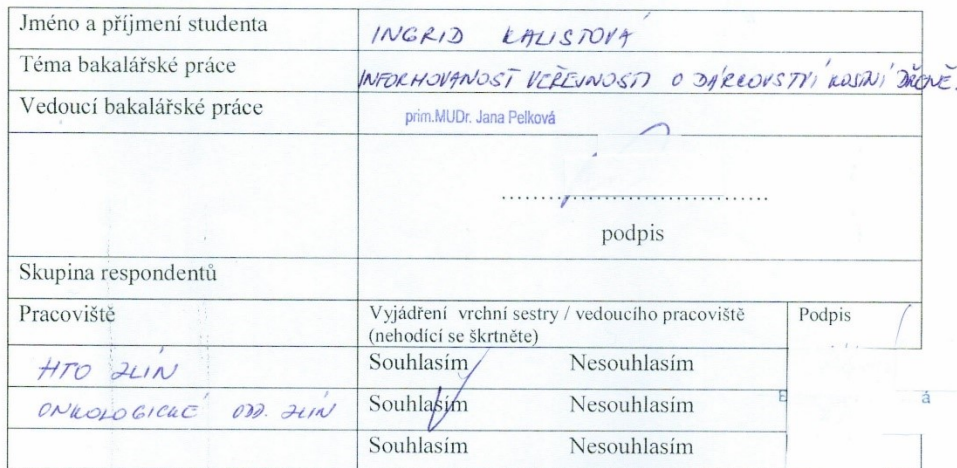 Jméno a příjmení studenta
INGRID KALISTOVÁ
Téma bakalářské práce
INFORMOVANOST VEŘEJNOSTI O DÁRCOVSTVÍ KOSTNÍ DŘENĚ.
Vedoucí bakalářské práce
prim.MUDr. Jana Pelková
podpis
Skupina respondentů
Pracoviště
Vyjádření vrchní sestry / vedoucího pracoviště
Podpis
(nehodící se škrtněte)
HTO ZLÍN
Souhlasím Nesouhlasím
ONKOLOGICKÉ ODD. ZLÍN
Souhlasím Nesouhlasím
Souhlasím Nesouhlasím